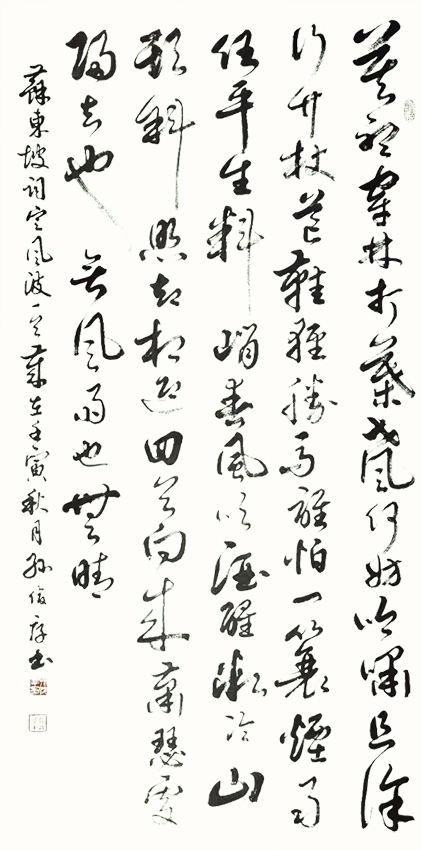 莫聽穿林打葉聲何妨吟嘯且徐
行竹杖芒鞋輕勝馬誰怕一蓑煙雨
任平生料峭春風吹酒醒微冷山
頭斜照卻相迎回首向來蕭瑟處
歸去也無風雨也無晴
蘇東坡詞定風波一首歲在壬寅秋月孫俊書